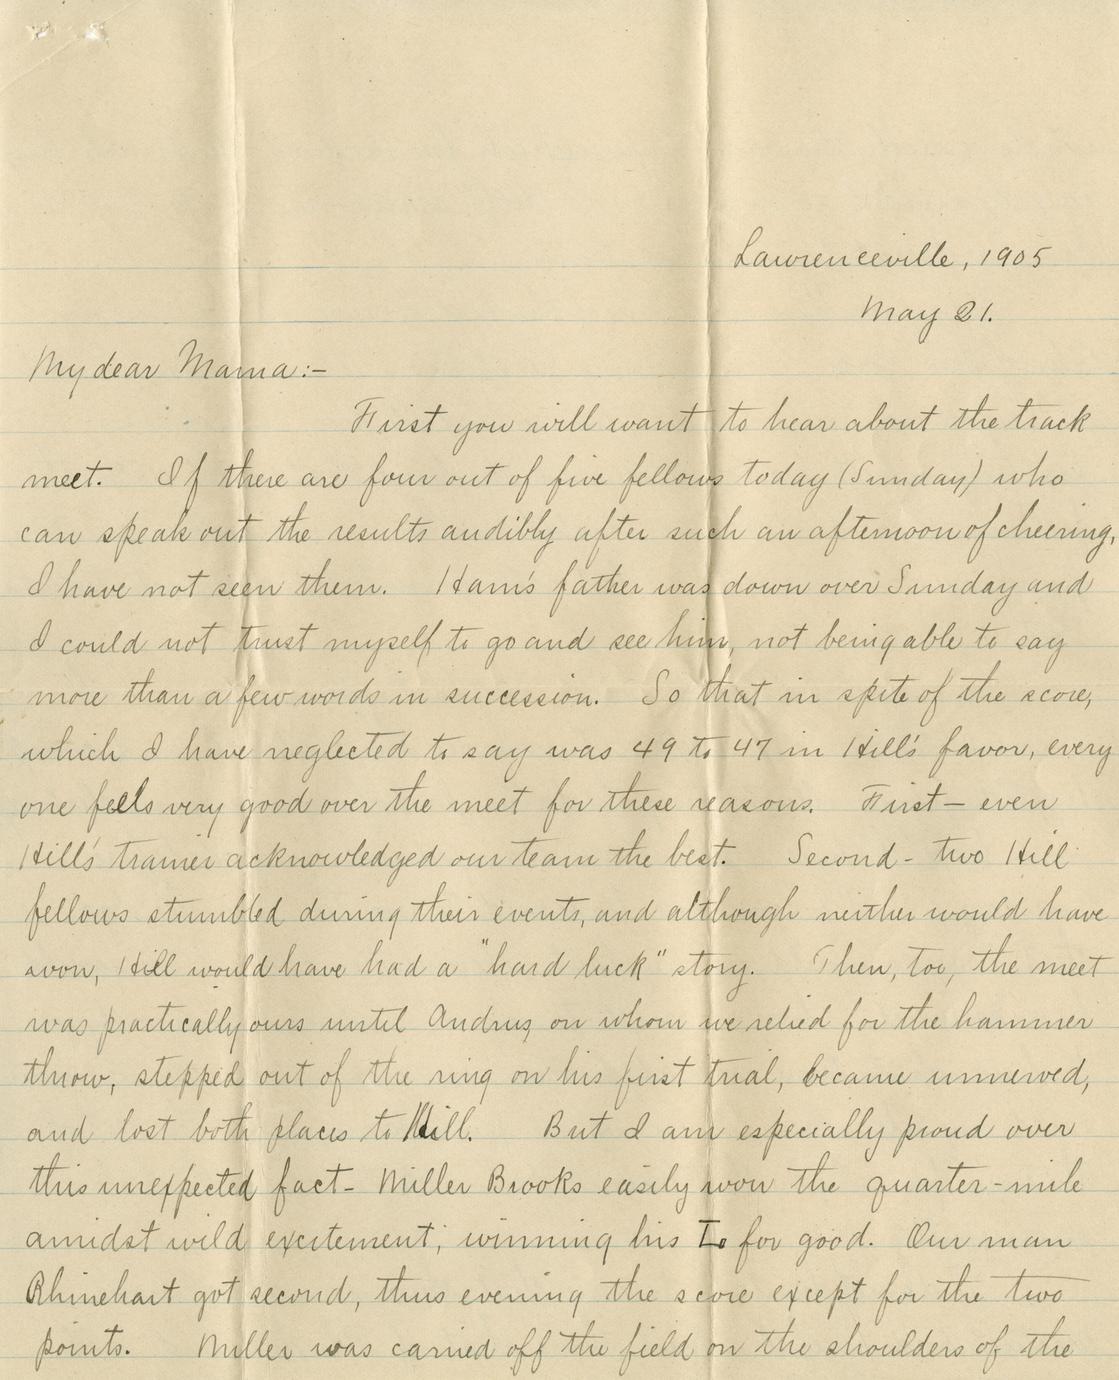 Lawrenceville, 1905
May 21.
My dear Mama:-
First you will want to hear about the track
meet. If there are four out of five fellows today (Sunday) who
can speak out the results audibly after such an afternoon of cheering,
I have not seen them. Ham's father was down over Sunday and
I could not trust myself to go and see him, not being able to say
more than a few words in succession. So that in spite of the score,
which I have neglected to say was 49 to 47 in Hill's favor, every
one feels very good over the meet for these reasons. First- even
Hill's trainer acknowledged our team the best. Second- two Hill
fellows stumbled during their events, and although neither would have
won, Hill would have had a "hard luck" story. Then, too, the meet
was practically ours until Andrus, on whom we relied for the hammer
throw, stepped out of the ring on his first trial, became unnerved,
and lost both places to Hill. But I am especially proud over
this unexpected fact- Miller Brooks easily won the quarter-mile
amidst wild excitement, winning his L for good. Our man
Rhinehart got second, thus evening the score except for the two
points. Miller was carried off the field on the shoulders of the